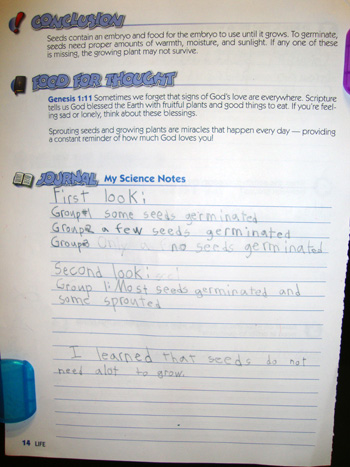 CONCLUSION
Seeds contain an embryo and food for the embryo to use until it grows. To germinate,
seeds need proper amounts of warmth, moisture, and sunlight. If any one of these
is missing, the growing plant may not survive.
FOOD FOR THOUGHT
Genesis 1:11 Sometimes we forget that signs of God's love are everywhere. Scripture
tells us God blessed the Earth with fruitful plants and good things to eat. If you're feel-
ing sad or lonely, think about these blessings.
Sprouting seeds and growing plants are miracles that happen every day — providing
a constant reminder of how much God loves you!
JOURNAL My Science Notes
First look:
Group 1 some seeds germinated
Group 2 a few seeds germinated
Group 3 no seeds germinated
Second look:
Group 1: Most seeds germinated and
some sprouted
I learned that seeds do not
need alot to grow.
14 LIFE